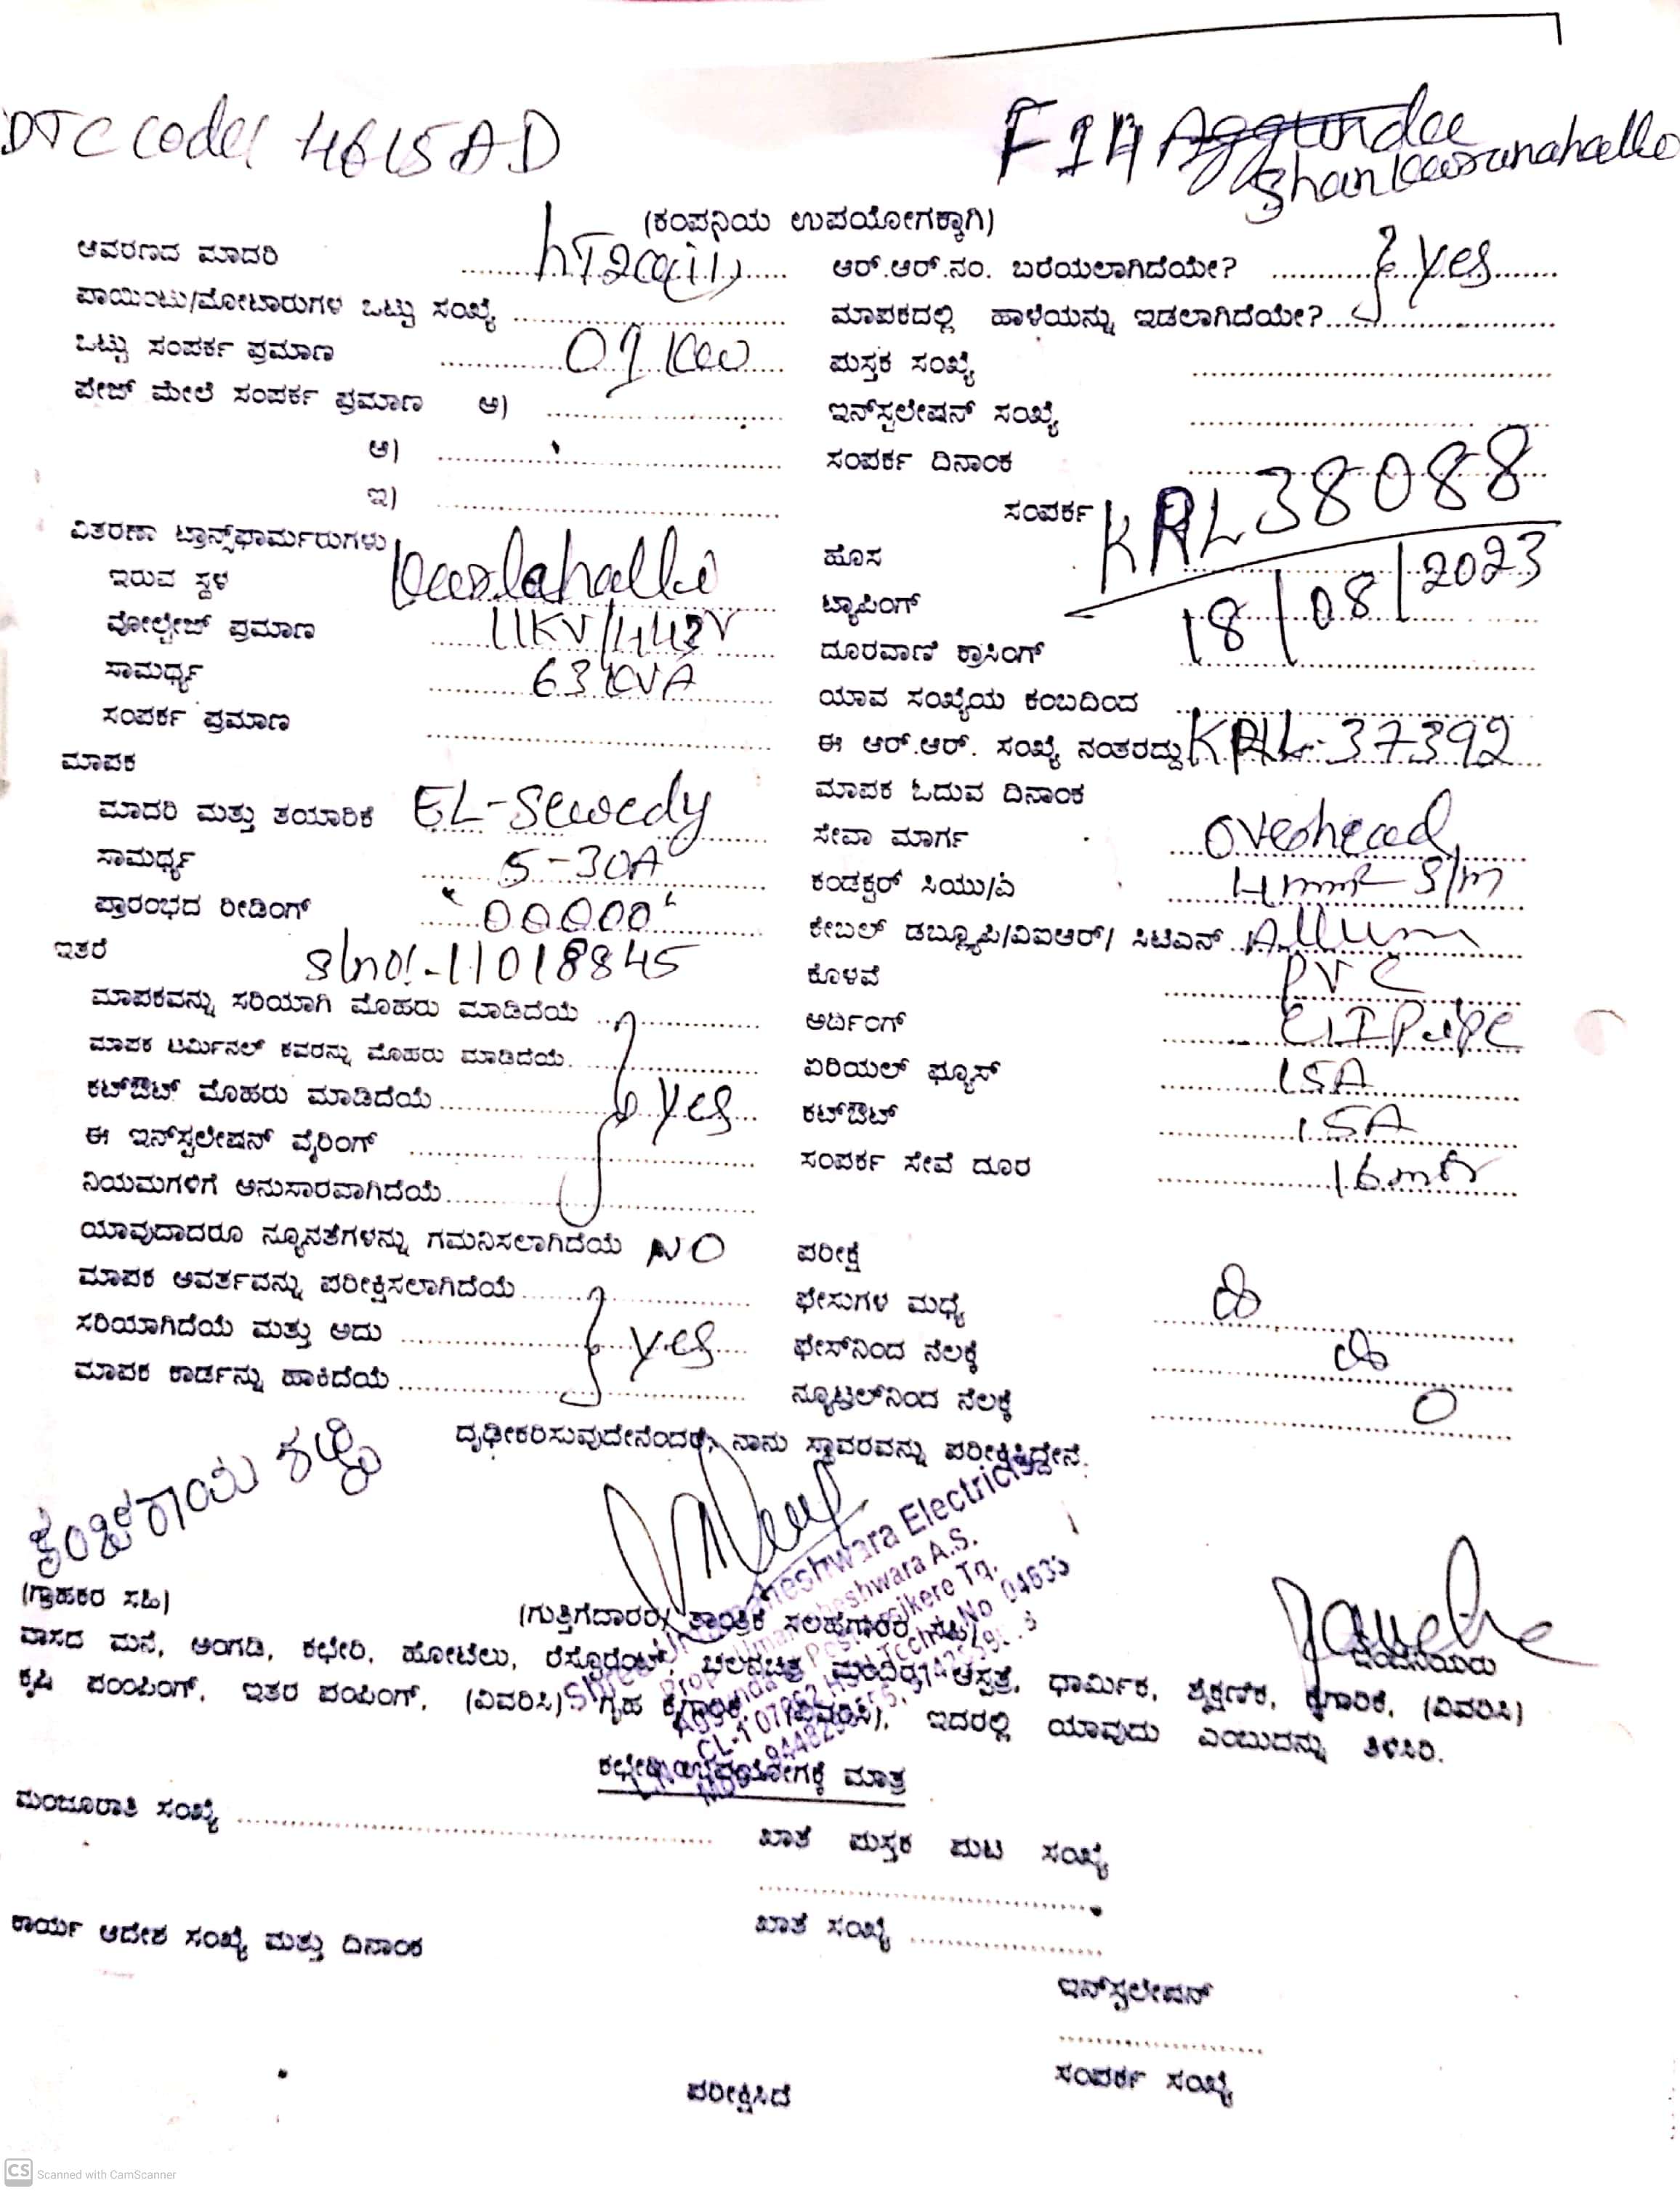 DTC code: 4615AD
F14 Aggunda
Shankaranahalli
(ಕಂಪನಿಯ ಉಪಯೋಗಕ್ಕಾಗಿ)
ಆವರಣದ ಮಾದರಿ
ಆರ್.ಆರ್.ನಂ. ಬರೆಯಲಾಗಿದೆಯೇ? } yes
ಪಾಯಿಂಟು/ಮೋಟಾರುಗಳ ಒಟ್ಟು ಸಂಖ್ಯೆ
ಮಾಪಕದಲ್ಲಿ ಹಾಳೆಯನ್ನು ಇಡಲಾಗಿದೆಯೇ?
ಒಟ್ಟು ಸಂಪರ್ಕ ಪ್ರಮಾಣ 01 kw
ಪುಸ್ತಕ ಸಂಖ್ಯೆ
ಪೇಜ್ ಮೇಲೆ ಸಂಪರ್ಕ ಪ್ರಮಾಣ ಅ)
ಇನ್‌ಸ್ಟಲೇಷನ್ ಸಂಖ್ಯೆ
ಆ)
ಸಂಪರ್ಕ ದಿನಾಂಕ
ಇ)
ಸಂಪರ್ಕ KRL38088
ವಿತರಣಾ ಟ್ರಾನ್ಸ್‌ಫಾರ್ಮರುಗಳು
ಹೊಸ
ಇರುವ ಸ್ಥಳ
ಟ್ಯಾಪಿಂಗ್ 18/08/2023
ವೋಲ್ಟೇಜ್ ಪ್ರಮಾಣ 11KV/
ದೂರವಾಣಿ ಕ್ರಾಸಿಂಗ್
ಸಾಮರ್ಥ್ಯ 63 KVA
ಯಾವ ಸಂಖ್ಯೆಯ ಕಂಬದಿಂದ
ಸಂಪರ್ಕ ಪ್ರಮಾಣ
ಈ ಆರ್.ಆರ್. ಸಂಖ್ಯೆ ನಂತರದ್ದು KRL-37392
ಮಾಪಕ
ಮಾಪಕ ಓದುವ ದಿನಾಂಕ
ಮಾದರಿ ಮತ್ತು ತಯಾರಿಕೆ EL-Sewedy
ಸೇವಾ ಮಾರ್ಗ Overhead
ಸಾಮರ್ಥ್ಯ 5-30A
ಕಂಡಕ್ಟರ್ ಸಿಯು/ಎ 4mm² S/m
ಪ್ರಾರಂಭದ ರೀಡಿಂಗ್ "00000"
ಕೇಬಲ್ ಡಬ್ಲ್ಯೂಪಿ/ವಿಐಆರ್/ ಸಿಟಿಎನ್ Allum
ಇತರೆ Slno:-11018845
ಕೊಳವೆ PVC
ಮಾಪಕವನ್ನು ಸರಿಯಾಗಿ ಮೊಹರು ಮಾಡಿದೆಯೆ
ಅರ್ದಿಂಗ್ G.I Pipe
ಮಾಪಕ ಟರ್ಮಿನಲ್ ಕವರನ್ನು ಮೊಹರು ಮಾಡಿದೆಯೆ
ಏರಿಯಲ್ ಫ್ಯೂಸ್ 15A
ಕಟ್‌ಔಟ್ ಮೊಹರು ಮಾಡಿದೆಯೆ } yes
ಕಟ್‌ಔಟ್ 15A
ಈ ಇನ್‌ಸ್ಟಲೇಷನ್ ವೈರಿಂಗ್
ಸಂಪರ್ಕ ಸೇವೆ ದೂರ 16 mtr
ನಿಯಮಗಳಿಗೆ ಅನುಸಾರವಾಗಿದೆಯೆ
ಯಾವುದಾದರೂ ನ್ಯೂನತೆಗಳನ್ನು ಗಮನಿಸಲಾಗಿದೆಯೆ NO
ಪರೀಕ್ಷೆ
ಮಾಪಕ ಆವರ್ತವನ್ನು ಪರೀಕ್ಷಿಸಲಾಗಿದೆಯೆ
ಫೇಸುಗಳ ಮಧ್ಯೆ ∞
ಸರಿಯಾಗಿದೆಯೆ ಮತ್ತು ಅದು } yes
ಫೇಸ್‌ನಿಂದ ನೆಲಕ್ಕೆ ∞
ಮಾಪಕ ಕಾರ್ಡನ್ನು ಹಾಕಿದೆಯೆ
ನ್ಯೂಟ್ರಲ್‌ನಿಂದ ನೆಲಕ್ಕೆ 0
ದೃಢೀಕರಿಸುವುದೇನೆಂದರೆ, ನಾನು ಸ್ಥಾವರವನ್ನು ಪರೀಕ್ಷಿಸಿದ್ದೇನೆ.
(ಗ್ರಾಹಕರ ಸಹಿ)
(ಗುತ್ತಿಗೆದಾರರ/ ತಾಂತ್ರಿಕ ಸಲಹೆಗಾರರ ಸಹಿ)
ಇಂಜಿನಿಯರು
ವಾಸದ ಮನೆ, ಅಂಗಡಿ, ಕಛೇರಿ, ಹೋಟೆಲು, ರೆಸ್ಟೊರೆಂಟ್, ಚಲನಚಿತ್ರ ಮಂದಿರ, ಆಸ್ಪತ್ರೆ, ಧಾರ್ಮಿಕ, ಶೈಕ್ಷಣಿಕ, ಕೈಗಾರಿಕೆ, (ವಿವರಿಸಿ)
ಕೃಷಿ ಪಂಪಿಂಗ್, ಇತರ ಪಂಪಿಂಗ್, (ವಿವರಿಸಿ) ಗೃಹ ಕೈಗಾರಿಕೆ, (ವಿವರಿಸಿ), ಇದರಲ್ಲಿ ಯಾವುದು ಎಂಬುದನ್ನು ತಿಳಿಸಿರಿ.
ಕಛೇರಿ ಉಪಯೋಗಕ್ಕೆ ಮಾತ್ರ
ಮಂಜೂರಾತಿ ಸಂಖ್ಯೆ
ಖಾತೆ ಪುಸ್ತಕ ಪುಟ ಸಂಖ್ಯೆ
ಕಾರ್ಯ ಆದೇಶ ಸಂಖ್ಯೆ ಮತ್ತು ದಿನಾಂಕ
ಖಾತೆ ಸಂಖ್ಯೆ
ಇನ್‌ಸ್ಟಲೇಷನ್
ಸಂಪರ್ಕ ಸಂಖ್ಯೆ
ಪರೀಕ್ಷಿಸಿದೆ
CS Scanned with CamScanner